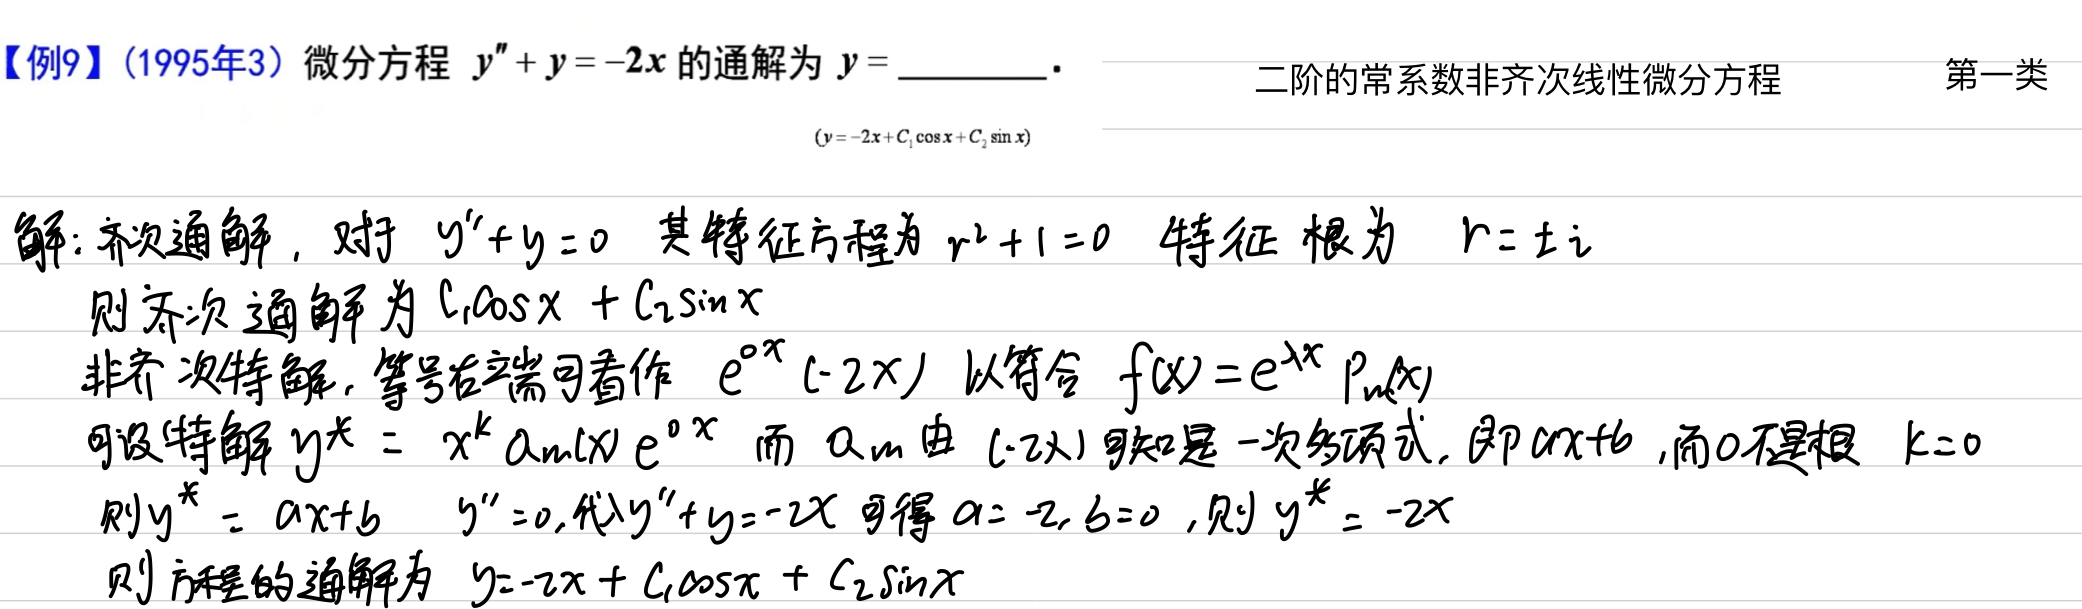 【例9】(1995年3) 微分方程 y″ + y = −2x 的通解为 y = ________.
二阶的常系数非齐次线性微分方程 第一类
(y = −2x + C₁ cos x + C₂ sin x)
解: 齐次通解, 对于 y″+y=0 其特征方程为 r²+1=0 特征根为 r=±i
则齐次通解为 C₁cosx + C₂sinx
非齐次特解, 等号右端可看作 e^{0x}(-2x) 以符合 f(x)=e^{λx} Pm(x)
可设特解 y* = x^k Qm(x) e^{0x} 而 Qm 由 (-2x) 可知是一次多项式, 即 ax+b, 而0不是根 k=0
则 y* = ax+b y″=0, 代入 y″+y=-2x 可得 a=-2, b=0, 则 y* = -2x
则方程的通解为 y=-2x + C₁cosx + C₂sinx